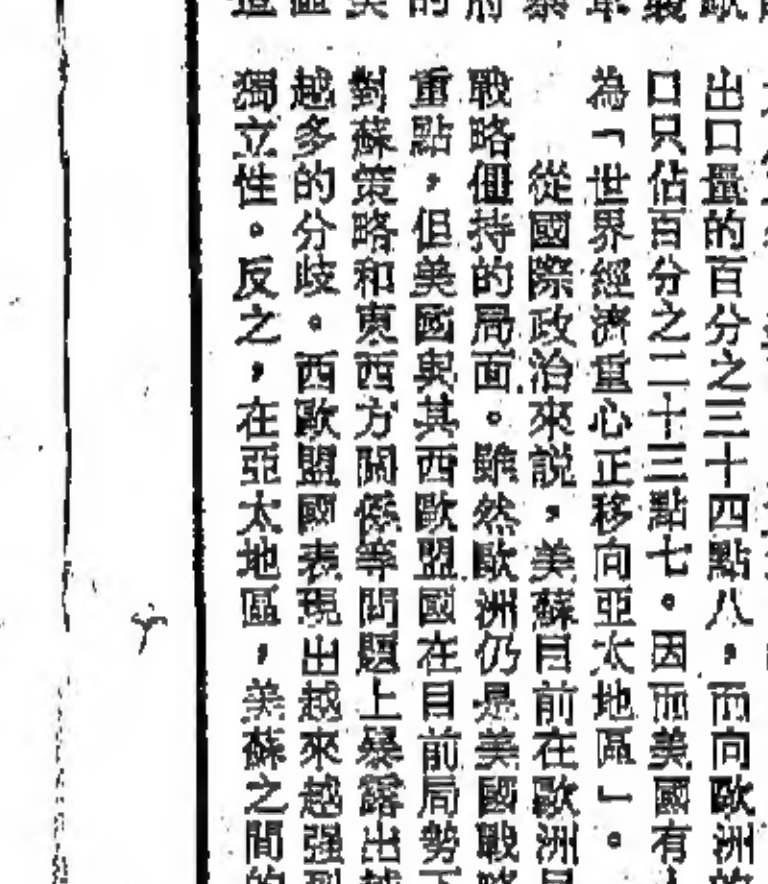 出口量的百分之三十四點八，而向歐洲
口只佔百分之二十三點七。因而美國有
為「世界經濟重心正移向亞太地區」。
從國際政治來説，美蘇目前在歐洲
戰略僵持的局面。雖然歐洲仍是美國戰略
重點，但美國與其西歐盟國在目前局勢下
對蘇策略和東西方關係等問題上暴露出越
越多的分歧。西歐盟國表現出越來越强烈
獨立性。反之，在亞太地區，美蘇之間的